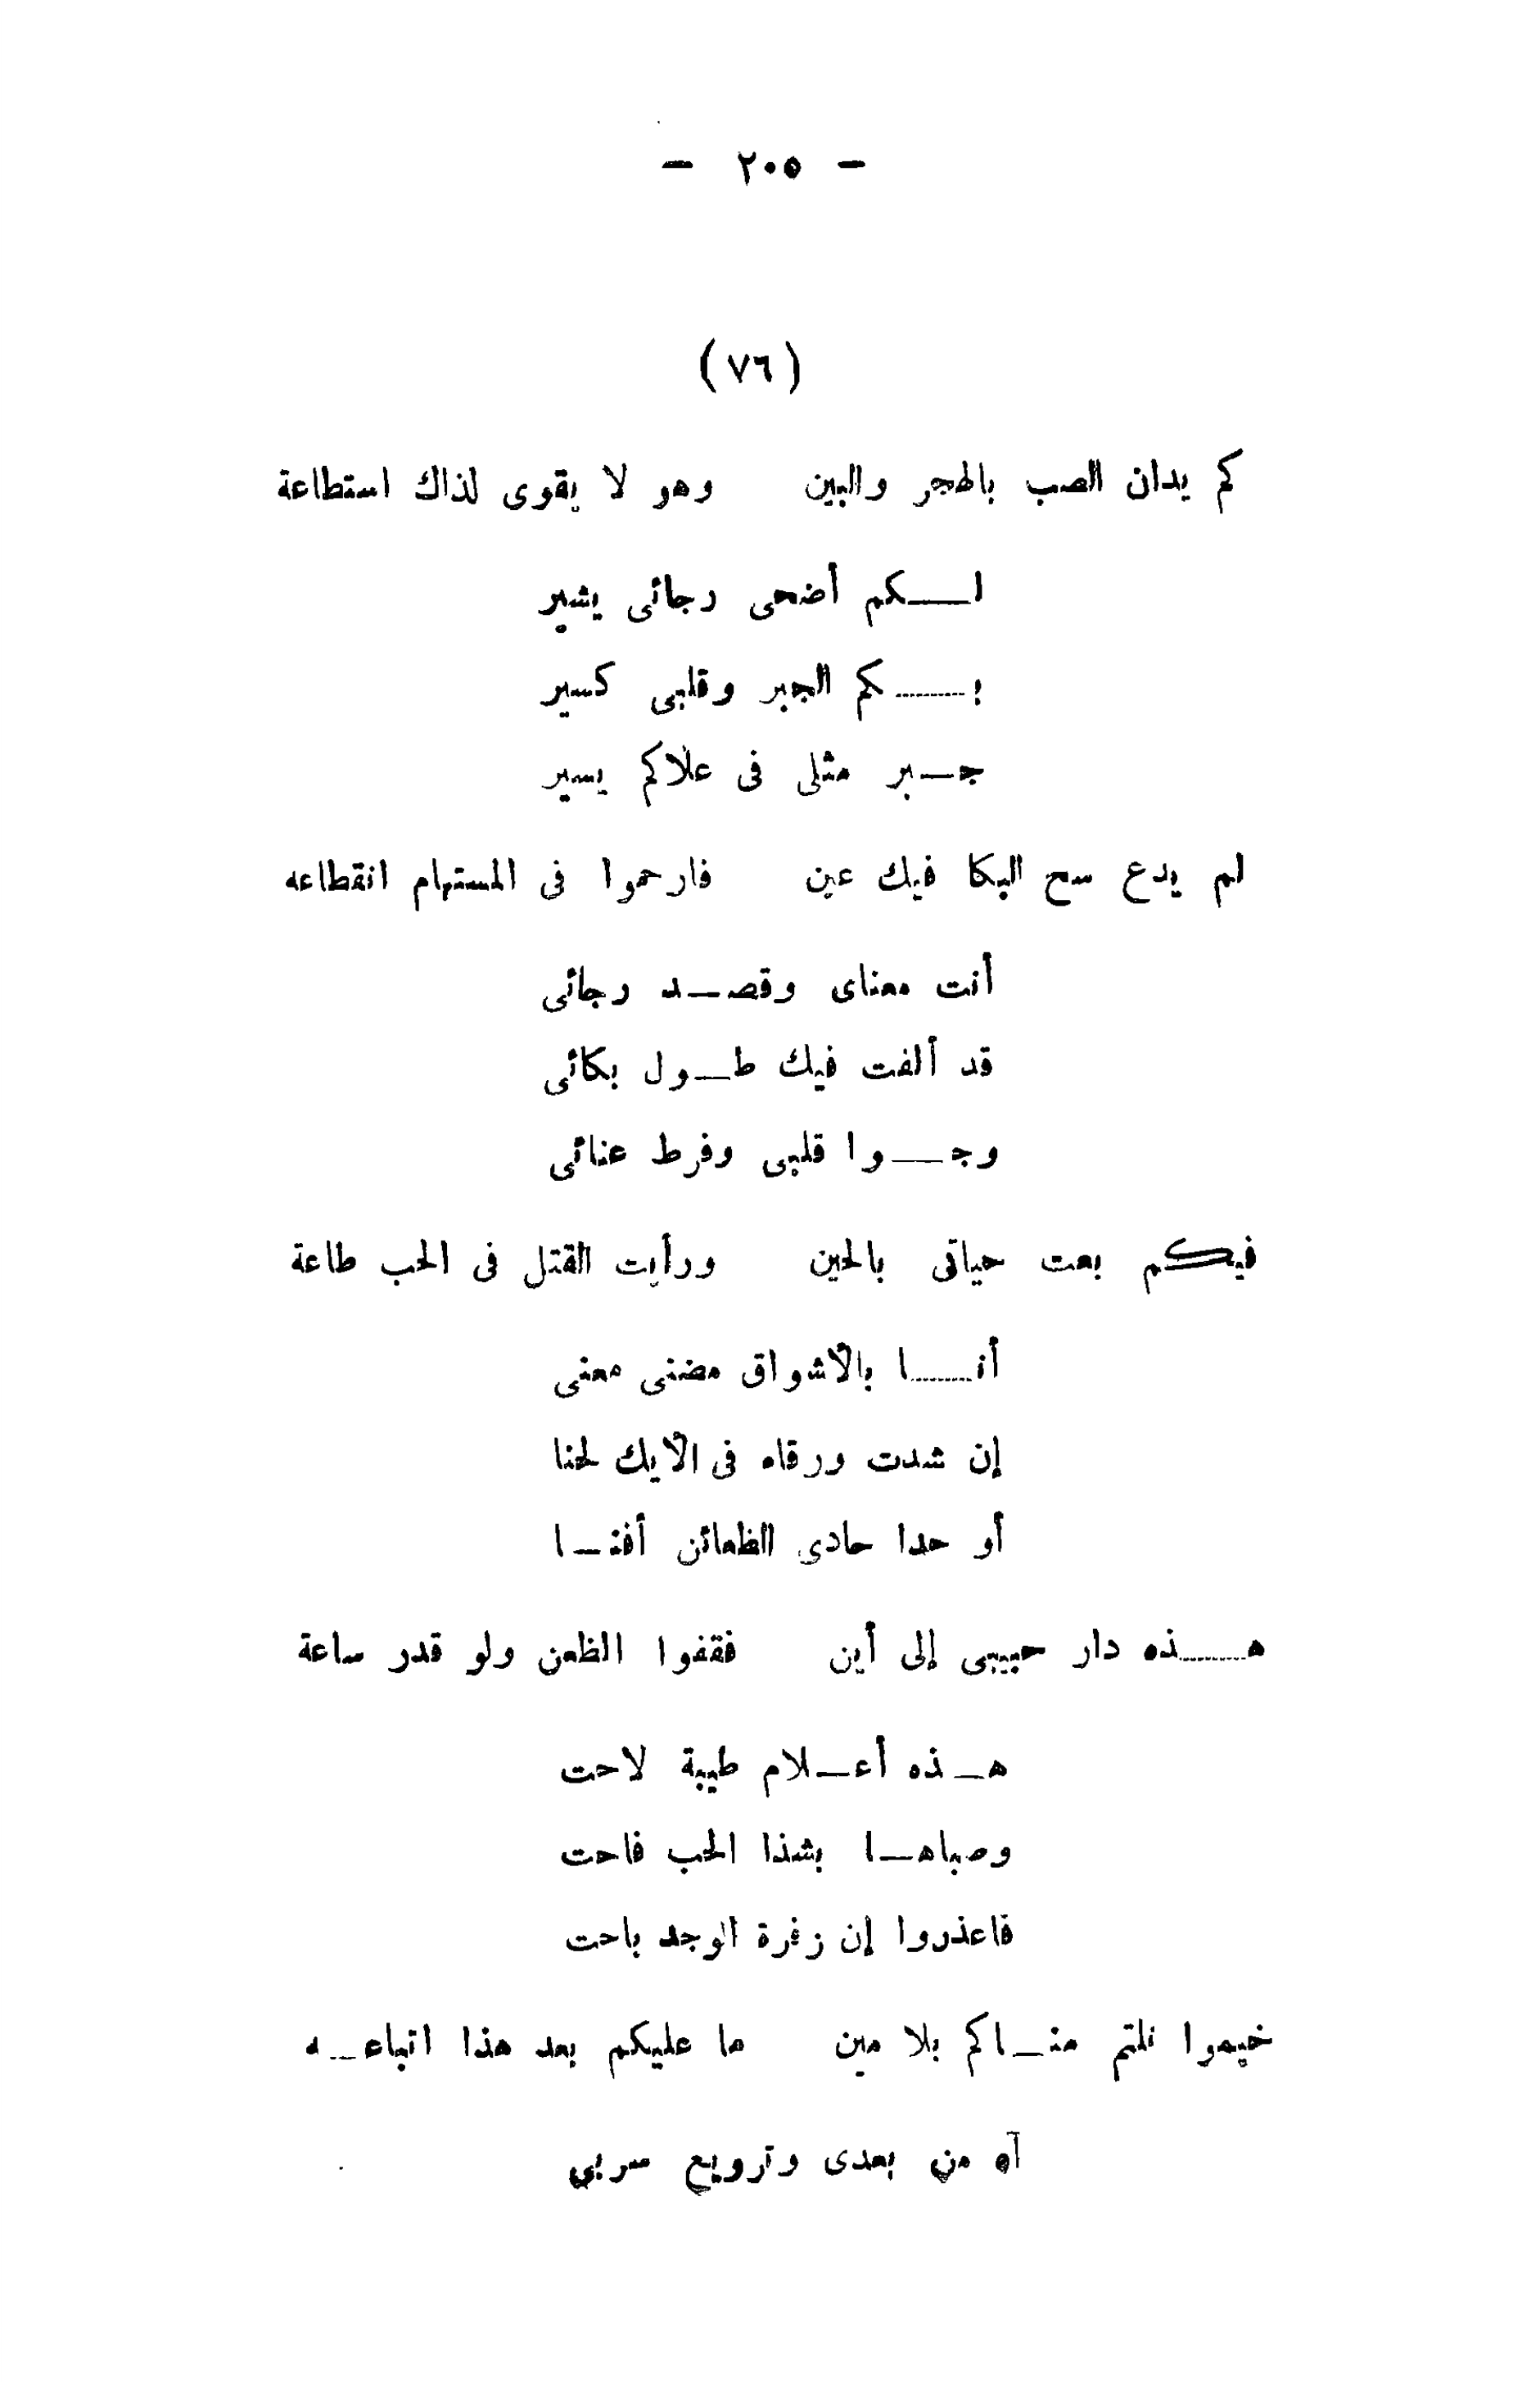 — ٢٠٥ —
(٧٦)
كم يدان الصب بالهجر والبين وهو لا يقوى لذاك استطاعة
لـكم أضحى رجائى يشير
بـكم الجبر وقلبى كسير
جـبر مثلى فى علاكم يسير
لم يدع سح البكا فيك عين فارحموا فى المستهام انقطاعه
أنت معناى وقصـد رجائى
قد ألفت فيك طـول بكائى
وجـوا قلبى وفرط عنائى
فيكم بعت حياتى بالحين ورأيت القتل فى الحب طاعة
أنـا بالأشواق مضنى معنى
إن شدت ورقاه فى الأيك لحنا
أو حدا حادى الظعائن أفنـا
هـذه دار حبيبى إلى أين فقفوا الظعن ولو قدر ساعة
هـذه أعـلام طيبة لاحت
وصباهـا بشذا الحب فاحت
فاعذروا إن زفرة الوجد باحت
خيموا نلتم منـاكم بلا مين ما عليكم بعد هذا اتباعـه
آه من بعدى وترويع سربى